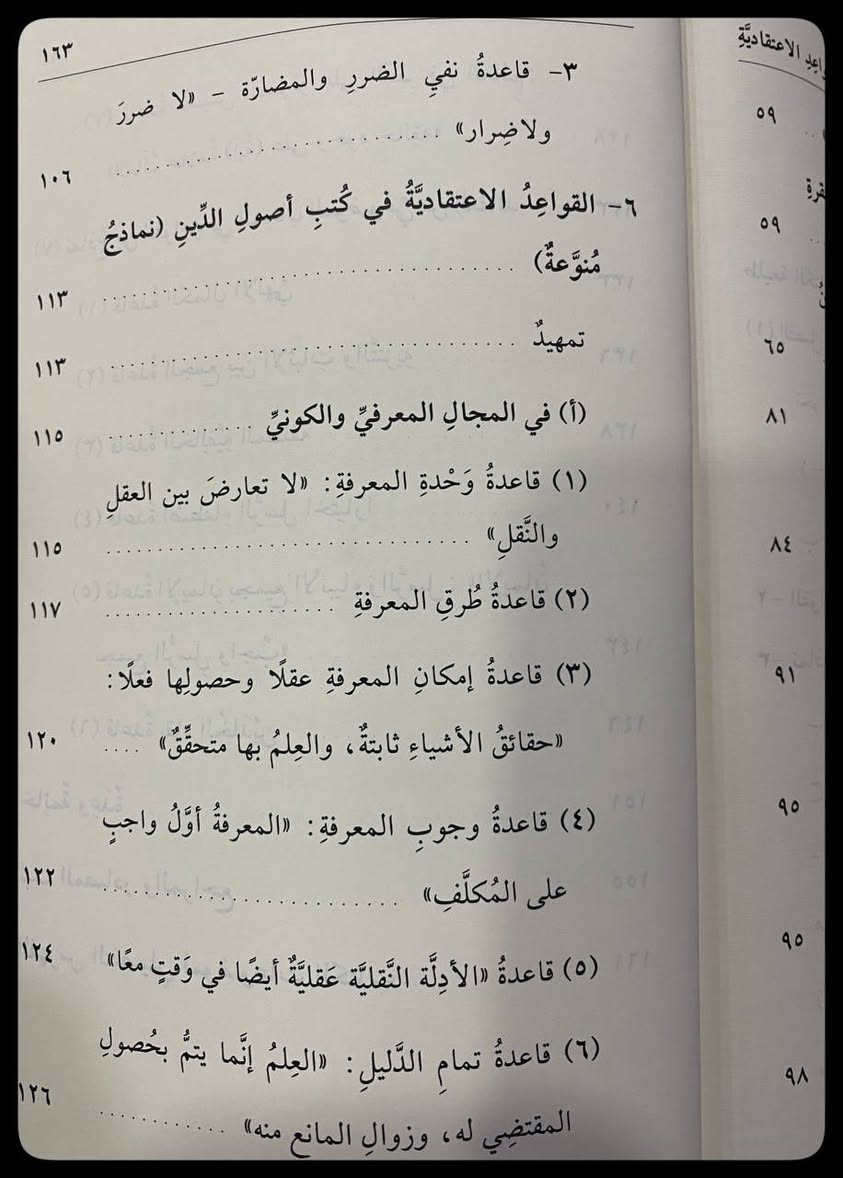 ١٦٣
٣- قاعدةُ نفيِ الضررِ والمضارّة - «لا ضررَ
ولاضِرار» ............................ ١٠٦
٦- القواعِدُ الاعتقاديَّةُ في كُتبِ أصولِ الدِّينِ (نماذجُ
مُنوَّعةٌ) ............................ ١١٣
تمهيدٌ ............................ ١١٣
(أ) في المجالِ المعرفيِّ والكونيِّ ............ ١١٥
(١) قاعدةُ وَحْدةِ المعرفةِ: «لا تعارضَ بين العقلِ
والنَّقلِ» ............................ ١١٥
(٢) قاعدةُ طُرقِ المعرفةِ .................... ١١٧
(٣) قاعدةُ إمكانِ المعرفةِ عقلًا وحصولِها فعلًا:
«حقائقُ الأشياءِ ثابتةٌ، والعِلمُ بها متحقِّقٌ» .... ١٢٠
(٤) قاعدةُ وجوبِ المعرفةِ: «المعرفةُ أوَّلُ واجبٍ
على المُكلَّفِ» ............................ ١٢٢
(٥) قاعدةُ «الأدِلَّة النَّقليَّة عَقليَّةٌ أيضًا في وَقتٍ معًا» ١٢٤
(٦) قاعدةُ تمامِ الدَّليلِ: «العِلمُ إنَّما يتمُّ بحُصولِ
المقتضِي له، وزوالِ المانع منه» ............ ١٢٦
الاعتقاديَّةِ
٥٩
٥٩
٦٥
٨١
٨٤
٩١
٩٥
٩٥
٩٨